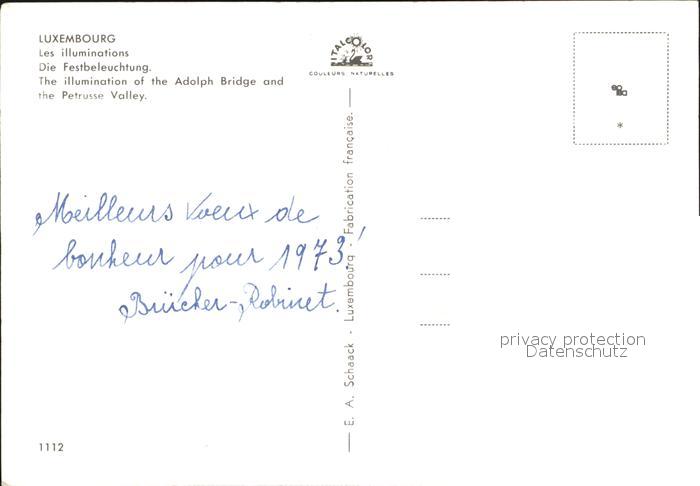 LUXEMBOURG
Les illuminations
Die Festbeleuchtung.
The illumination of the Adolph Bridge and
the Petrusse Valley.
ITALCOLOR
COULEURS NATURELLES
*
Meilleurs vœux de
bonheur pour 1973!
Brücher-Robinet.
E. A. Schaack - Luxembourg - Fabrication française.
privacy protection
Datenschutz
1112